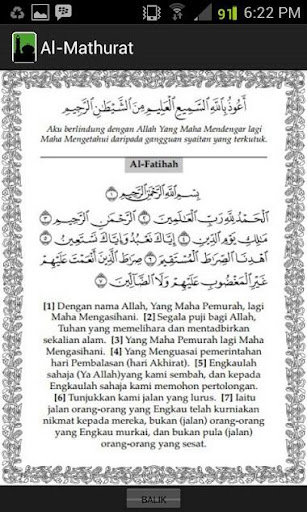 91
6:22 PM
Al-Mathurat
أَعُوْذُ بِاللهِ السَّمِيْعِ الْعَلِيْمِ مِنَ الشَّيْطٰنِ الرَّجِيْمِ
Aku berlindung dengan Allah Yang Maha Mendengar lagi
Maha Mengetahui daripada gangguan syaitan yang terkutuk.
Al-Fatihah
بِسْمِ اللهِ الرَّحْمٰنِ الرَّحِيْمِ ١
الْحَمْدُ لِلّٰهِ رَبِّ الْعٰلَمِيْنَ ٢ الرَّحْمٰنِ الرَّحِيْمِ ٣
مٰلِكِ يَوْمِ الدِّيْنِ ٤ إِيَّاكَ نَعْبُدُ وَإِيَّاكَ نَسْتَعِيْنُ ٥
اهْدِنَا الصِّرَاطَ الْمُسْتَقِيْمَ ٦ صِرَاطَ الَّذِيْنَ أَنْعَمْتَ عَلَيْهِمْ
غَيْرِ الْمَغْضُوْبِ عَلَيْهِمْ وَلَا الضَّالِّيْنَ ٧
[1] Dengan nama Allah, Yang Maha Pemurah, lagi
Maha Mengasihani. [2] Segala puji bagi Allah,
Tuhan yang memelihara dan mentadbirkan
sekalian alam. [3] Yang Maha Pemurah lagi Maha
Mengasihani. [4] Yang Menguasai pemerintahan
hari Pembalasan (hari Akhirat). [5] Engkaulah
sahaja (Ya Allah)yang kami sembah, dan kepada
Engkaulah sahaja kami memohon pertolongan.
[6] Tunjukkan kami jalan yang lurus. [7] Iaitu
jalan orang-orang yang Engkau telah kurniakan
nikmat kepada mereka, bukan (jalan) orang-orang
yang Engkau murkai, dan bukan pula (jalan)
orang-orang yang sesat.
BALIK